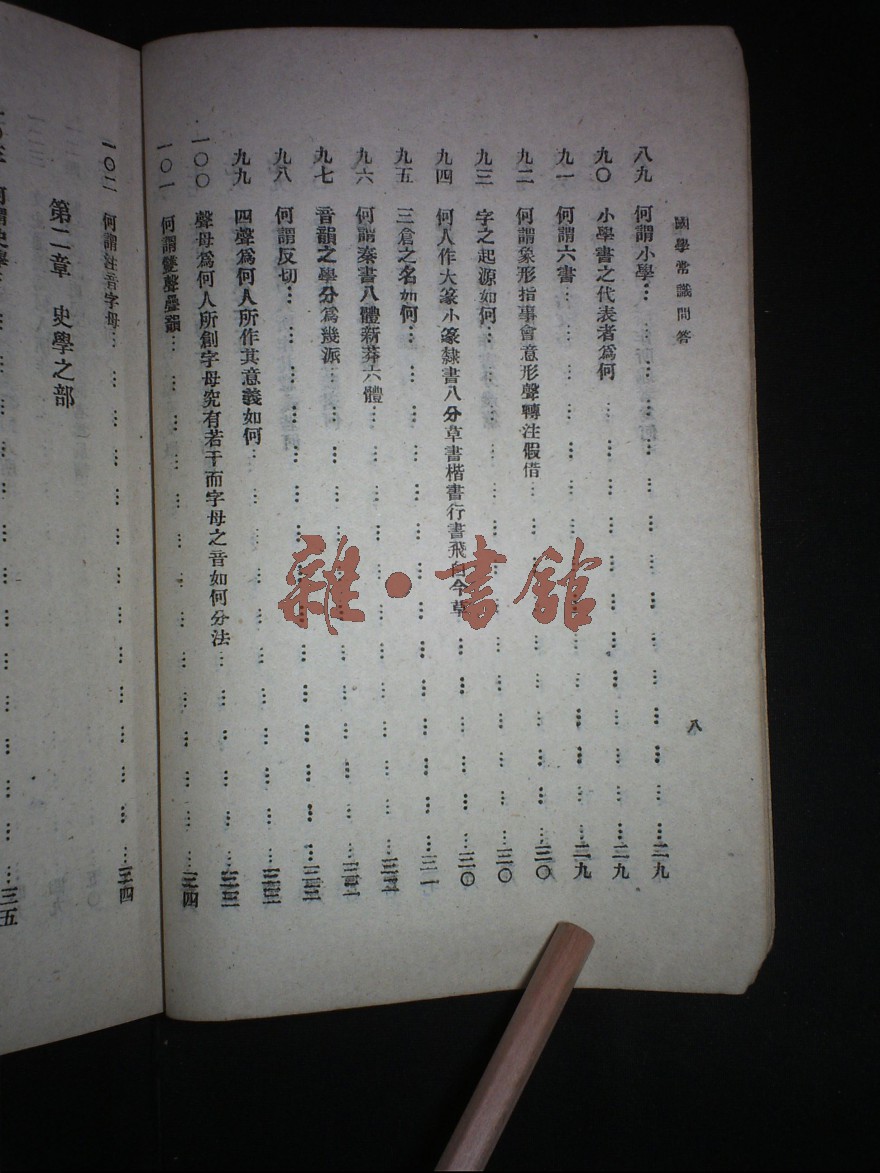 國學常識問答
八
八九 何謂小學…二九
九〇 小學書之代表者爲何…二九
九一 何謂六書…二九
九二 何謂象形指事會意形聲轉注假借…三〇
九三 字之起源如何…三〇
九四 何人作大篆小篆隸書八分草書楷書行書飛白今草…三〇
九五 三倉之名如何…三一
九六 何謂秦書八體新莽六體…三二
九七 音韻之學分爲幾派…三二
九八 何謂反切…三三
九九 四聲爲何人所作其意義如何…三三
一〇〇 聲母爲何人所創字母究有若干而字母之音如何分法…三三
一〇一 何謂雙聲疊韻…三四
一〇二 何謂注音字母…三四
第二章 史學之部
何謂史學…三五
雜·書館